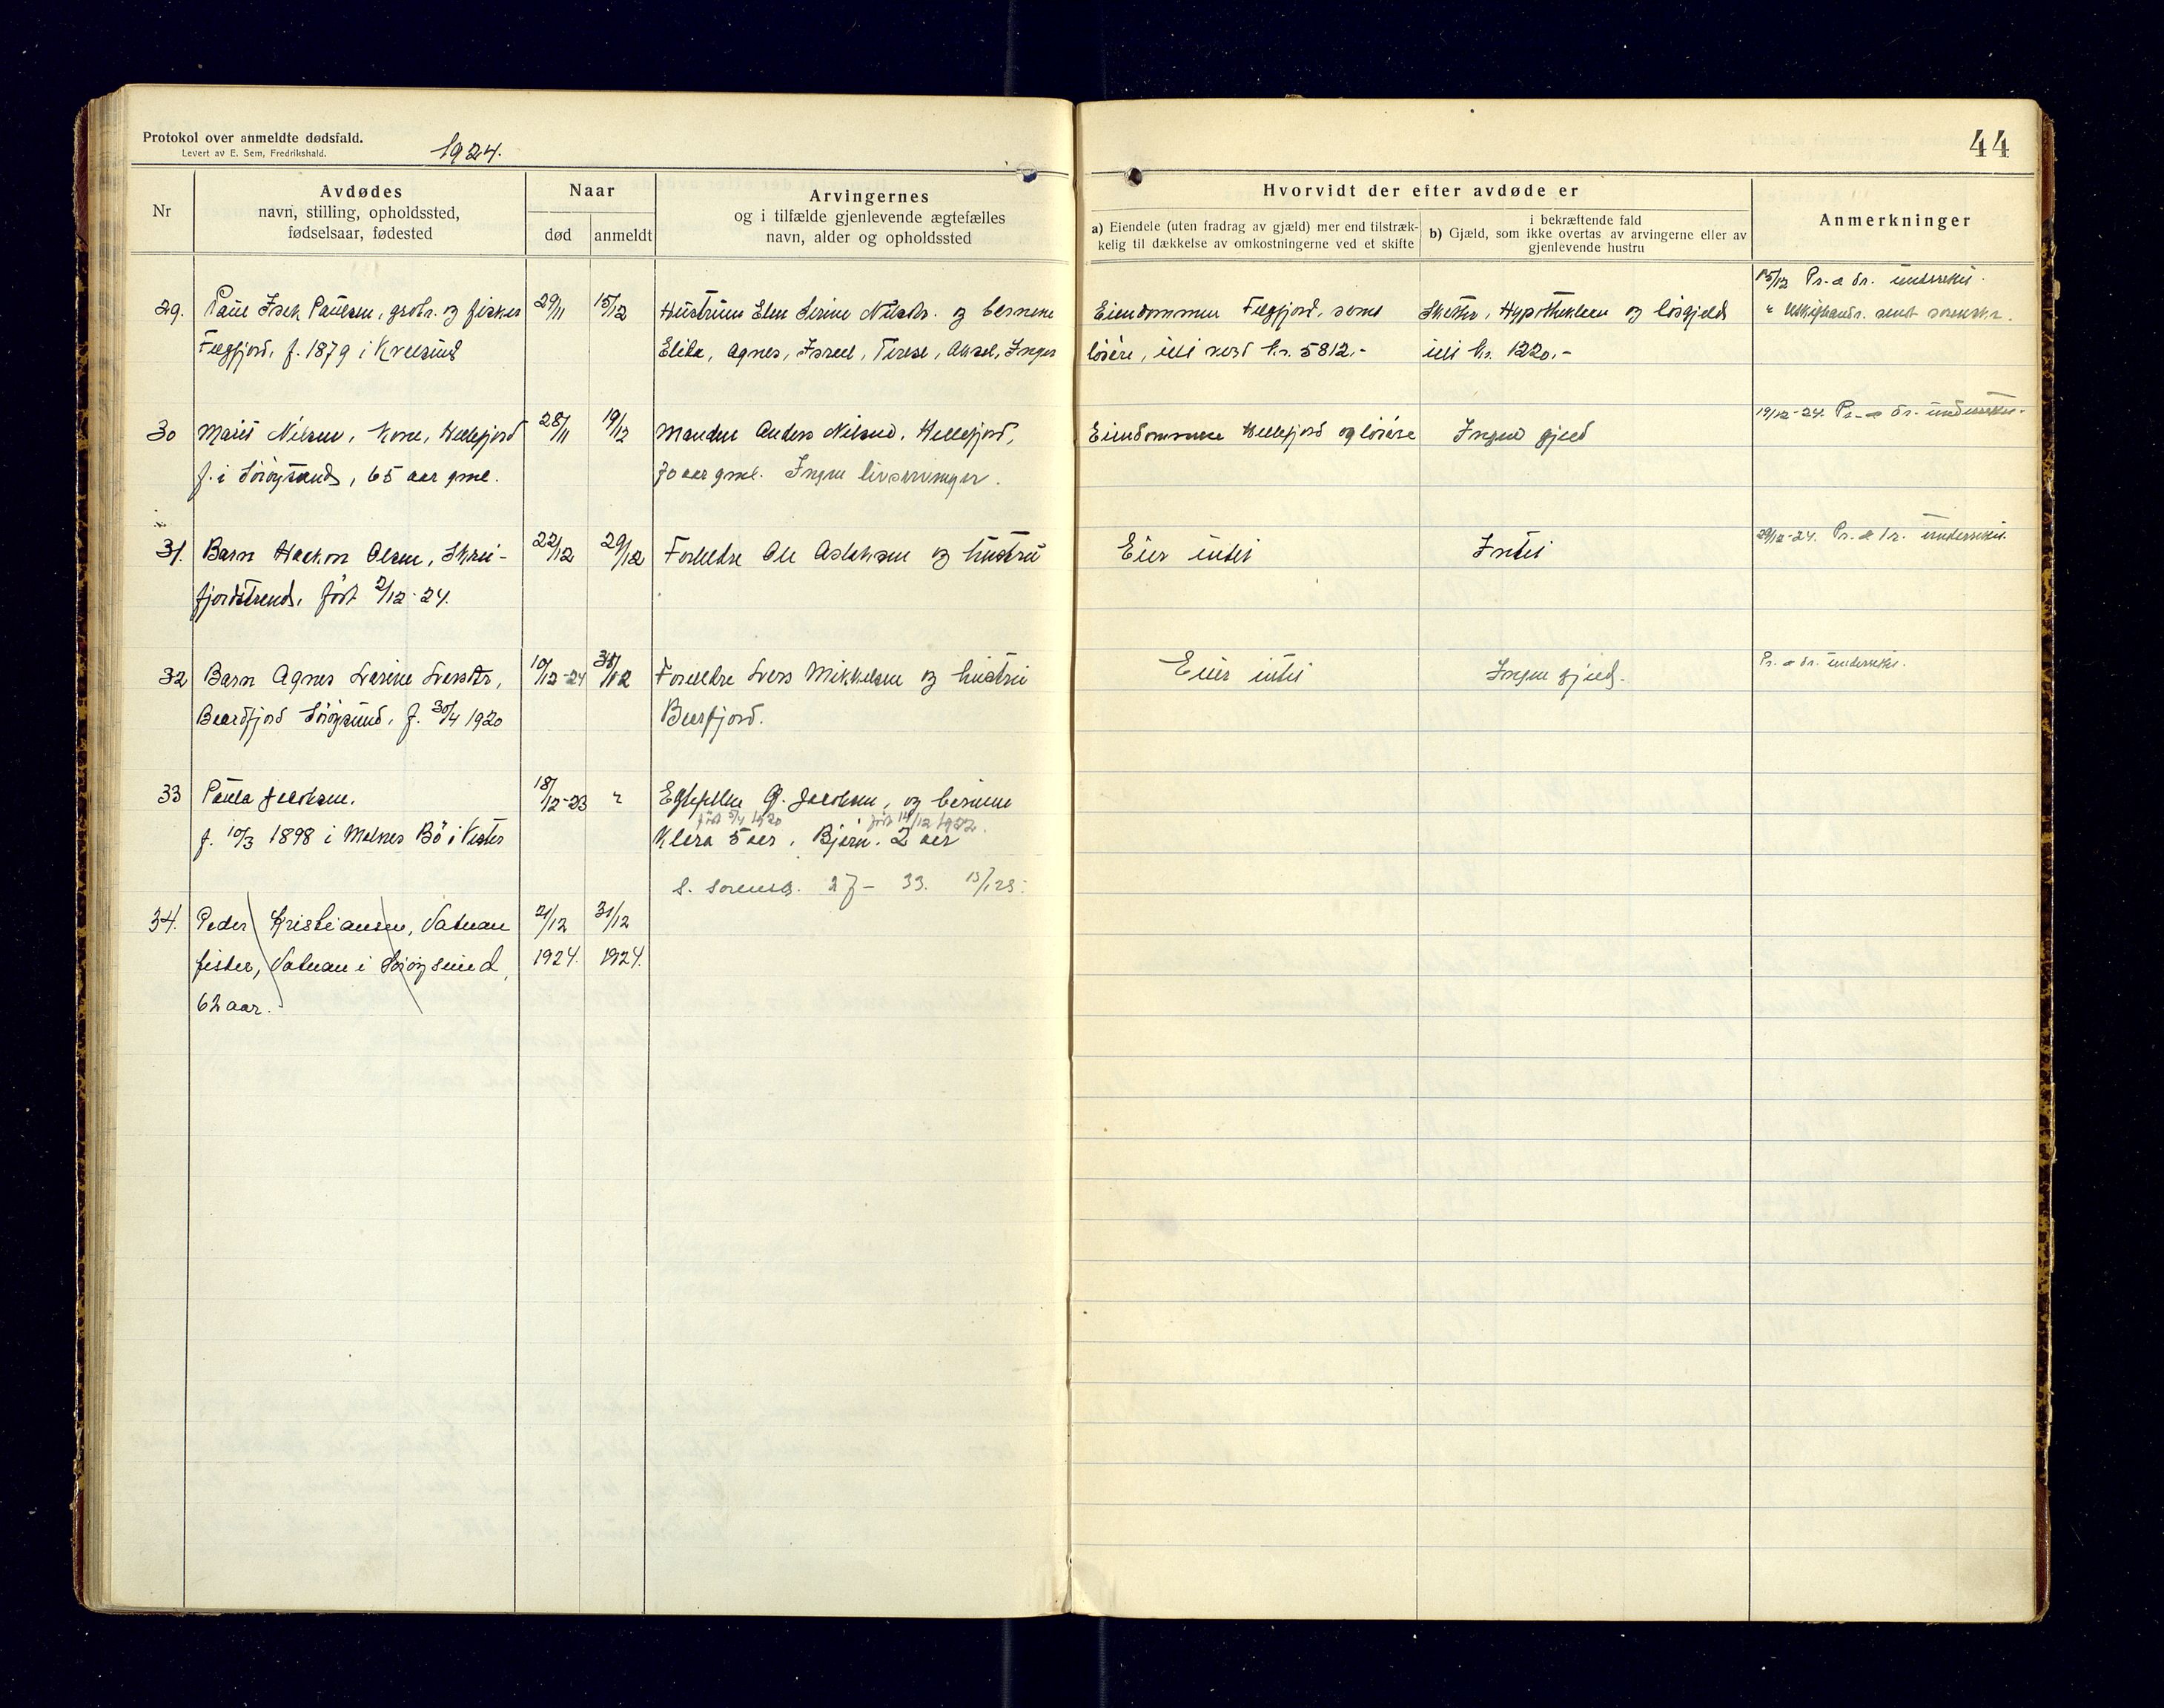 Protokol over anmeldte dødsfald.
Levert av E. Sem, Fredrikshald.
1924.
44
Nr
Avdødes
navn, stilling, opholdssted,
fødselsaar, fødested
Naar
død
anmeldt
Arvingernes
og i tilfælde gjenlevende ægtefælles
navn, alder og opholdssted
Hvorvidt der efter avdøde er
a) Eiendele (uten fradrag av gjæld) mer end tilstræk-
kelig til dækkelse av omkostningerne ved et skifte
i bekræftende fald
b) Gjæld, som ikke overtas av arvingerne eller av
gjenlevende hustru
Anmerkninger
29. Paul Isak Paulsen, grdbr. og fisker
Fægfjord, f. 1879 i Kvalsund
29/11
15/12
Hustruen Elen Serine Nilsdtr. og barnene
Elida, Agnes, Israel, Terese, Aksel, Inger
Eiendommen Fægfjord, samt
løsøre, alt verd kr. 5812.-
Skatter, Hypothekleen og løsgjeld
ialt kr. 1220.-
15/12 Pr. & dr. underrettet.
" Utskiftsandr. sendt sorenskr.
30 Marit Nilsen, kone, Hellefjord
f. i Sørøysund, 65 aar gml.
28/11
19/12
Manden Anders Nilsen, Hellefjord,
70 aar gml. Ingen livsarvinger.
Eiendommen Hellefjord og løsøre
Ingen gjeld
19/12-24. Pr. & dr. underrettet.
31. Barn Haakon Olsen, Skrei-
fjordstrand, født 2/12-24.
22/12
29/12
Foreldre Ole Aslaksen og hustru
Eier intet
Intet
29/12-24. Pr. & dr. underrettet.
32 Barn Agnes Lasine Larsdtr,
Bearfjord Sørøysund, f. 30/4 1920
10/12-24
31/12
Foreldre Lars Mikkelsen og hustru
Bærfjord.
Eier intet
Ingen gjeld.
Pr. & dr. underrettet.
33 Paula Jacobsen.
f. 10/3 1898 i Malnes Bø i Vester
18/12-23
"
Egtefellen G. Jacobsen, og barnene
født 5/4 1920 født 14/12 1922.
Klara 5 aar, Bjørn. 2 aar
s. sorensk. 27 - 33. 13/1 25.
34. Peder Kristiansen, Vatnan
fisker, Vatnan i Sørøysund,
62 aar.
21/12
1924.
31/12
1924.